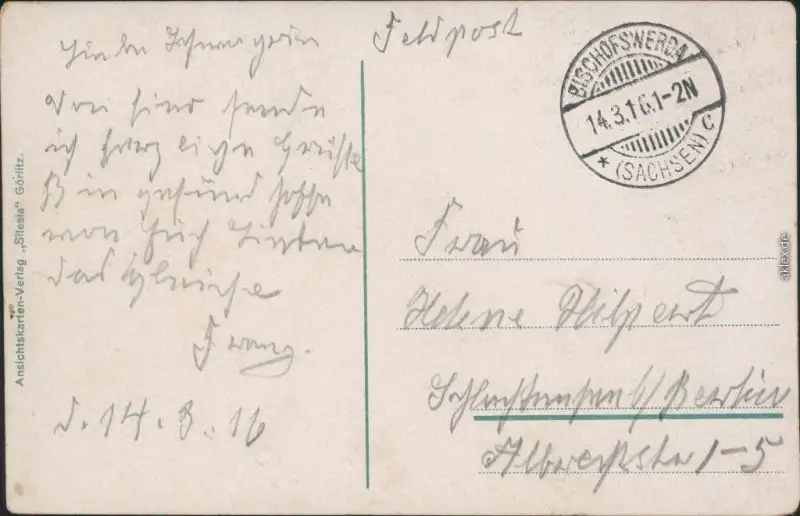 Feldpost
BISCHOFSWERDA
14.3.16.1-2N
* (SACHSEN) C
Von hier sende
ich herzliche Grüsse
Bin gesund hoffe
von Euch Lieben
das Gleiche
Franz.
d. 14. 3. 16
Frau
Helene Hilpert
Schlachtensee b/ Berlin
Albrechtstr 1-5
Ansichtskarten-Verlag „Silesia" Görlitz.
aklex.de